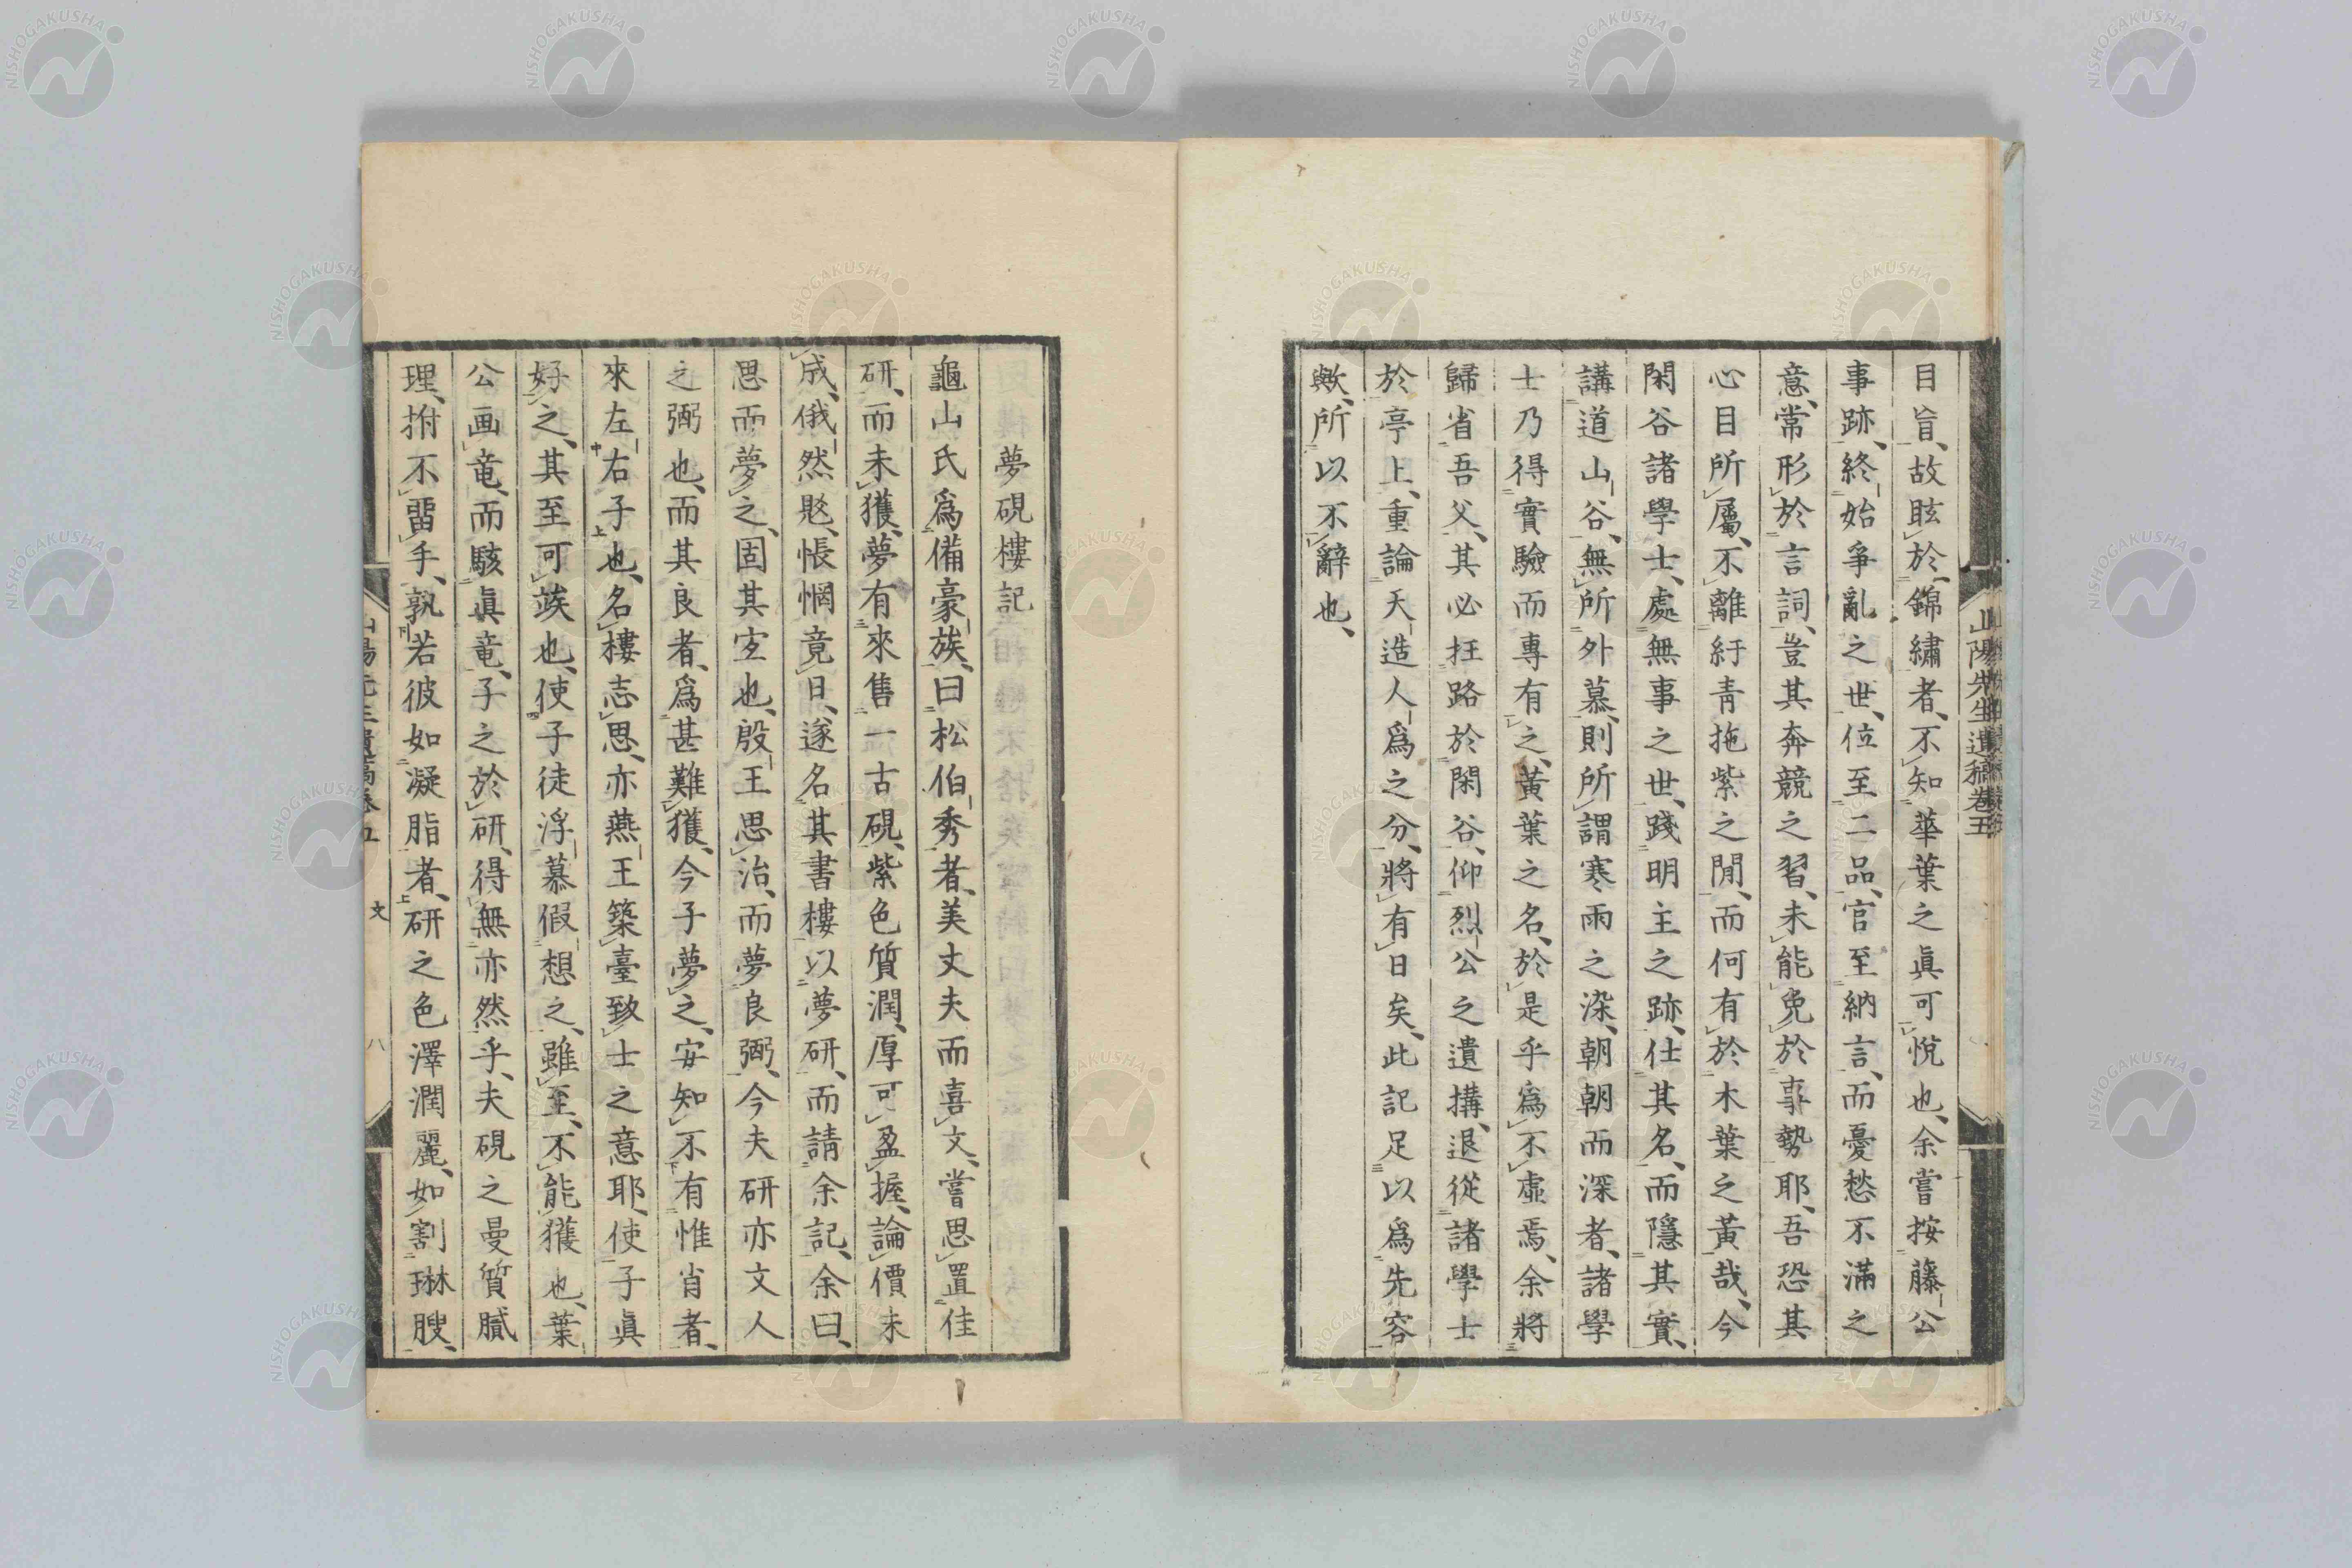 山陽先生遺稿卷五
目旨、故眩於錦繡者、不知華葉之眞可悅也、余嘗按藤公
事跡、終始爭亂之世、位至二品、官至納言、而憂愁不滿之
意、常形於言詞、豈其奔競之習、未能免於事勢耶、吾恐其
心目所屬、不離紆靑拖紫之閒、而何有於木葉之黃哉、今
閑谷諸學士、處無事之世、踐明主之跡、仕其名、而隱其實、
講道山谷、無所外慕、則所謂寒雨之染、朝朝而深者、諸學
士乃得實驗而專有之、黃葉之名、於是乎爲不虛焉、余將
歸省吾父、其必抂路於閑谷、仰烈公之遺搆、退從諸學士
於亭上、重論天造人爲之分、將有日矣、此記足以爲先容
歟、所以不辭也、
夢硯樓記
龜山氏爲備豪族、曰松伯秀者、美丈夫而喜文、嘗思置佳
研、而未獲、夢有來售一古硯、紫色質潤、厚可盈握、論價未
成、俄然覐、悵惘竟日、遂名其書樓、以夢研、而請余記、余曰、
思而夢之、固其宐也、殷王思治、而夢良弼、今夫研亦文人
之弼也、而其良者、爲甚難獲、今子夢之、安知不有惟肖者、
來左右子也、名樓志思、亦燕王築臺致士之意耶、使子眞
好之、其至可竢也、使子徒浮慕假想之、雖至、不能獲也、葉
公画竜、而駭眞竜、子之於研、得無亦然乎、夫硯之曼質膩
理、拊不畱手、孰若彼如凝脂者、研之色澤潤麗、如割琳腴、
山陽先生遺稿卷五
文
八
NISHOGAKUSHA